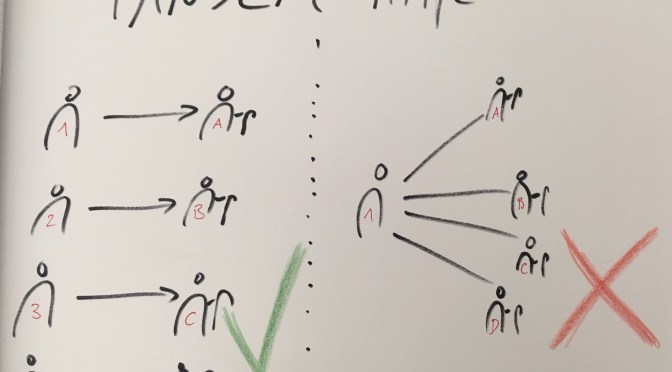 1 A
2 B
3 C
A
1 B
C
D